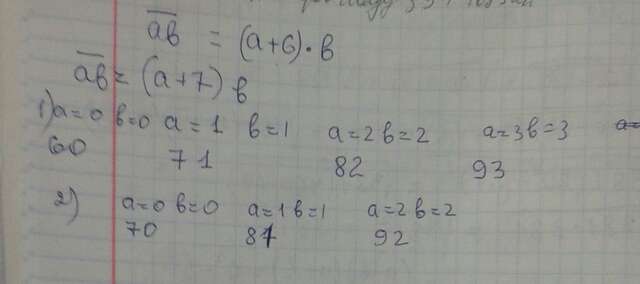 ab = (a+6)·b
ab = (a+7) b
1) a=0 b=0 a=1 b=1 a=2 b=2 a=3 b=3 a=
60 71 82 93
2) a=0 b=0 a=1 b=1 a=2 b=2
70 81 92